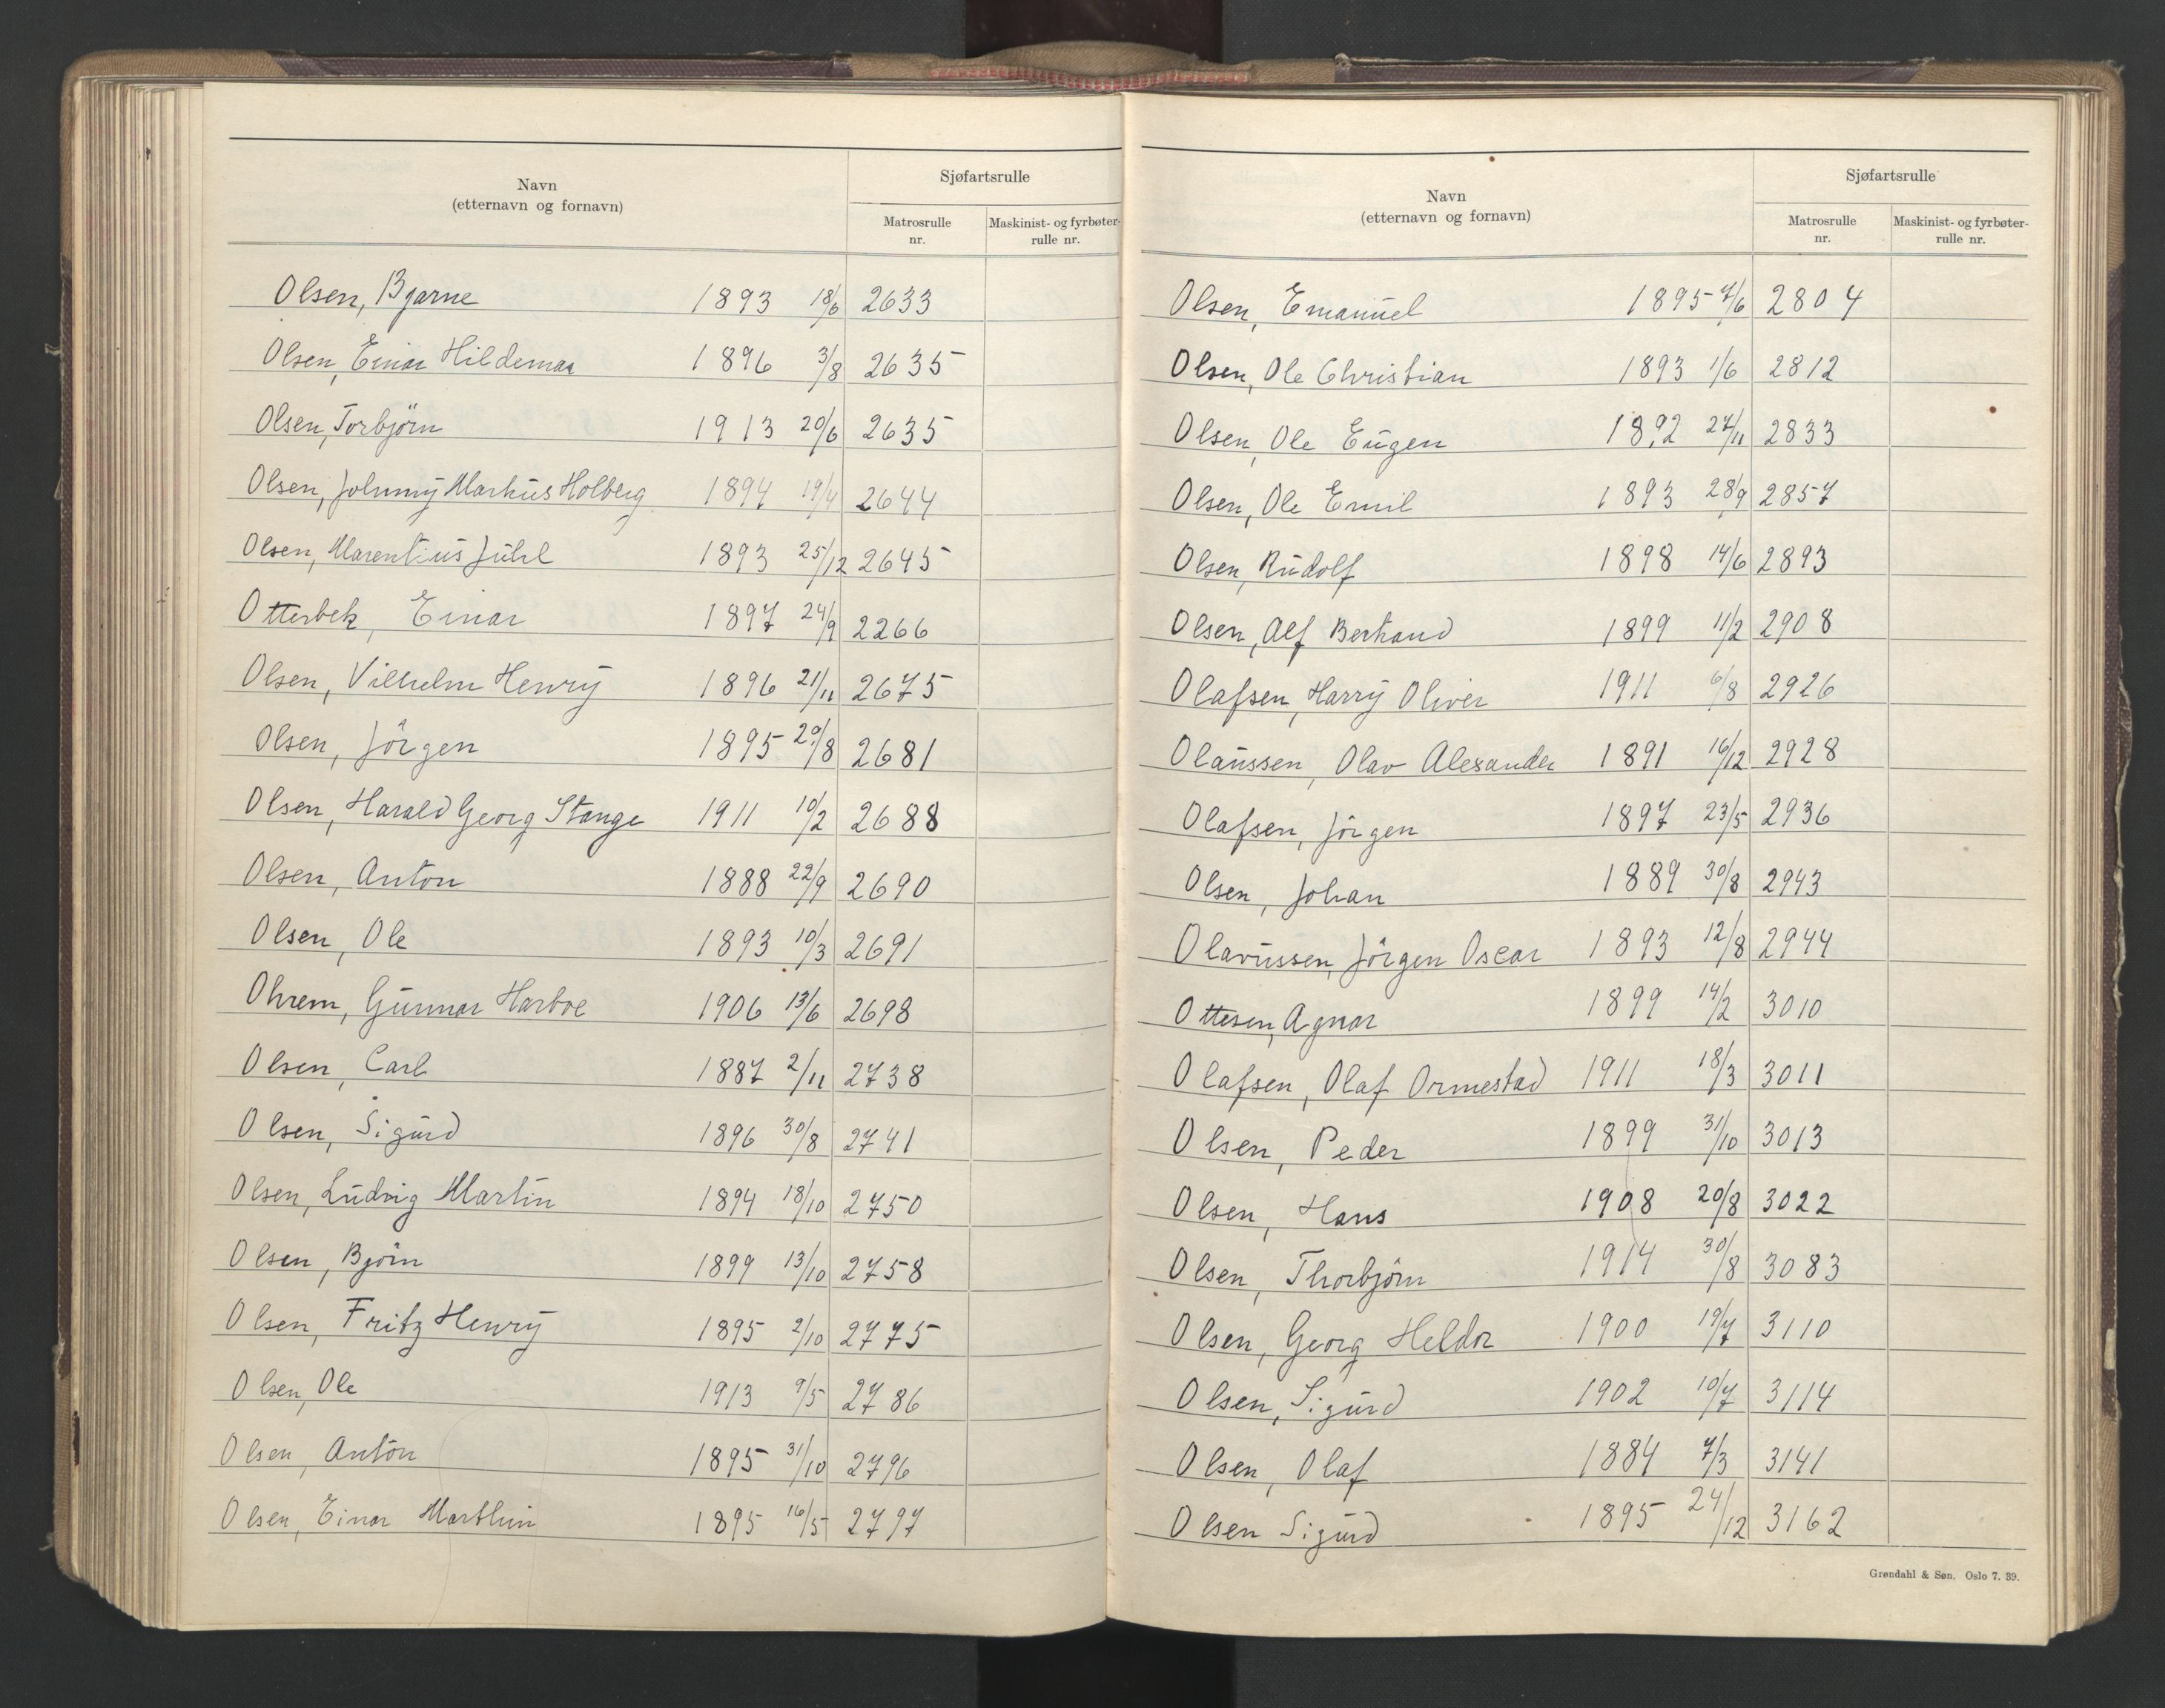 Navn
(etternavn og fornavn)
Sjøfartsrulle
Matrosrulle
nr.
Maskinist- og fyrbøter-
rulle nr.
Olsen, Bjarne 1893 18/6 2633
Olsen, Einar Hildemar 1896 3/8 2635
Olsen, Torbjörn 1913 20/6 2635
Olsen, Johnny Markus Holberg 1894 19/4 2644
Olsen, Marentius Juhl 1893 25/12 2645
Otterbek, Einar 1897 24/9 2266
Olsen, Vilhelm Henry 1896 21/11 2675
Olsen, Jörgen 1895 20/8 2681
Olsen, Harald Georg Stange 1911 10/2 2688
Olsen, Anton 1888 22/9 2690
Olsen, Ole 1893 10/3 2691
Ohrem, Gunnar Harboe 1906 13/6 2698
Olsen, Carl 1887 2/11 2738
Olsen, Sigurd 1896 30/8 2741
Olsen, Ludvig Martin 1894 18/10 2750
Olsen, Björn 1899 13/10 2758
Olsen, Fritz Henry 1895 2/10 2775
Olsen, Ole 1913 9/5 2786
Olsen, Anton 1895 31/10 2796
Olsen, Einar Marthin 1895 16/5 2797
Navn
(etternavn og fornavn)
Sjøfartsrulle
Matrosrulle
nr.
Maskinist- og fyrbøter-
rulle nr.
Olsen, Emanuel 1895 7/6 2804
Olsen, Ole Christian 1893 1/6 2812
Olsen, Ole Eugen 1892 27/11 2833
Olsen, Ole Emil 1893 28/9 2857
Olsen, Rudolf 1898 14/6 2893
Olsen, Alf Berhand 1899 11/2 2908
Olafsen, Harry Oliver 1911 6/8 2926
Olaussen, Olav Alexander 1891 16/12 2928
Olafsen, Jörgen 1897 23/5 2936
Olsen, Johan 1889 30/8 2943
Olavussen, Jörgen Oscar 1893 12/8 2944
Ottesen, Agnar 1899 14/2 3010
Olafsen, Olaf Ormestad 1911 18/3 3011
Olsen, Peder 1899 31/10 3013
Olsen, Hans 1908 20/8 3022
Olsen, Thorbjörn 1914 30/8 3083
Olsen, Georg Heldor 1900 19/7 3110
Olsen, Sigurd 1902 10/7 3114
Olsen, Olaf 1884 7/3 3141
Olsen Sigurd 1895 24/12 3162
Grøndahl & Søn. Oslo 7. 39.